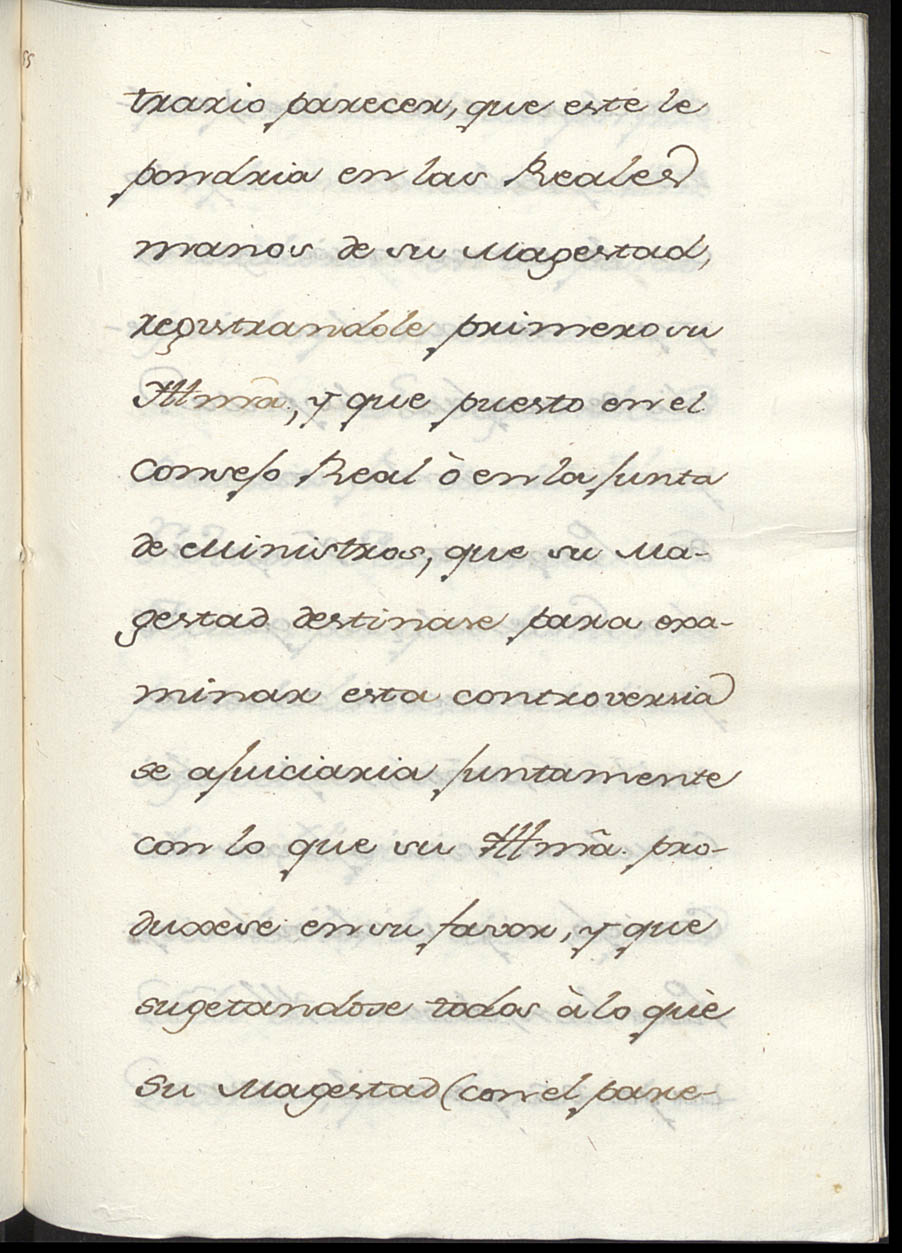 trario parecer, que este le
pondria en las Reales
manos de su Magestad,
registrandole primero su
Illmã., y que puesto en el
Consejo Real ò en la junta
de Ministros, que su Ma-
gestad destinase para exa-
minar esta controversia
se ajuiciaria juntamente
con lo que su Illmã. pro-
duxese en su favor, y que
sugetandose todos à lo què
Su Magestad (con el pare-